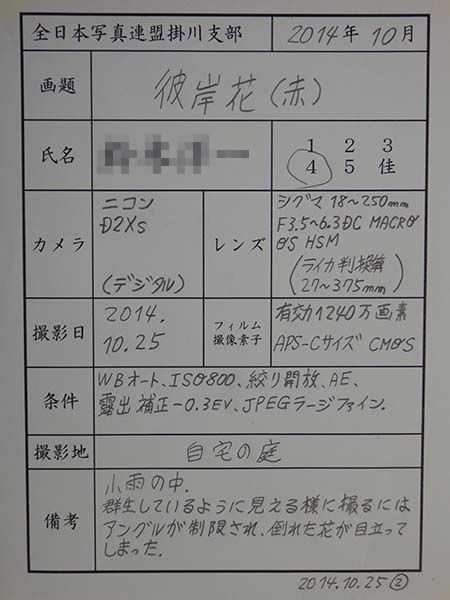 全日本写真連盟掛川支部 2014年 10月
画題 彼岸花(赤)
氏名 一 1 2 3
4 5 佳
カメラ ニコン
D2Xs
(デジタル)
レンズ シグマ 18~250mm
F3.5~6.3 DC MACRO
OS HSM
(ライカ判換算
27~375mm)
撮影日 2014.
10.25
フィルム
撮像素子
有効1240万画素
APS-Cサイズ CMOS
条件 WBオート、ISO800、絞り開放、AE、
露出補正-0.3EV、JPEGラージファイン.
撮影地 自宅の庭
備考 小雨の中.
群生しているように見える様に撮るには
アングルが制限され、倒れた花が目立って
しまった.
2014.10.25②